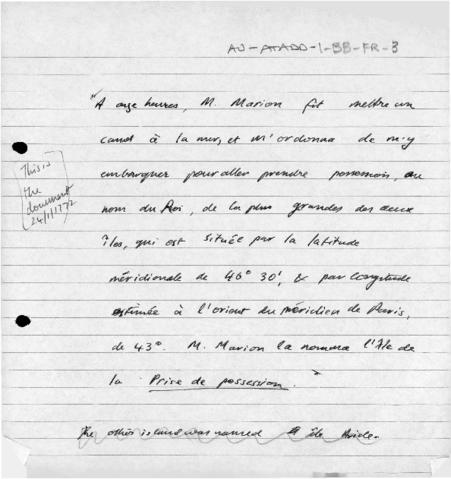 AU-ATADD-1-BB-FR-3
"A onze heures, M. Marion fit mettre un
canot à la mer, et m'ordonna de m'y
embarquer pour aller prendre possession, au
nom du Roi, de la plus grandes des deux
îles, qui est située par la latitude
méridionale de 46° 30', & par longitude
estimée à l'orient du méridien de Paris,
de 43°. M. Marion la nomma l'île de
la Prise de possession."
This is
the
document
24/1/1772
The other island was named île Aride.